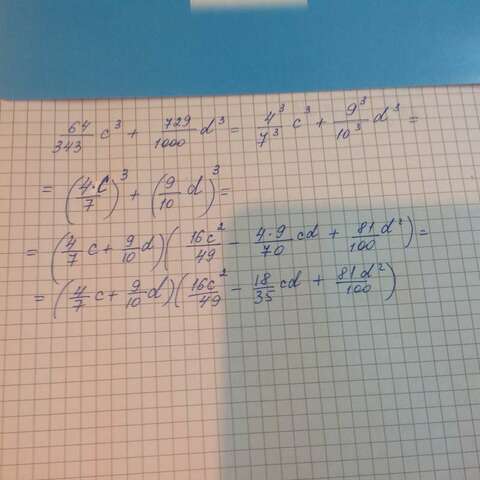 64/343 c³ + 729/1000 d³ = 4³/7³ c³ + 9³/10³ d³ =
= (4·c/7)³ + (9/10 d)³ =
= (4/7 c + 9/10 d)(16c²/49 − 4·9/70 cd + 81d²/100) =
= (4/7 c + 9/10 d)(16c²/49 − 18/35 cd + 81d²/100)